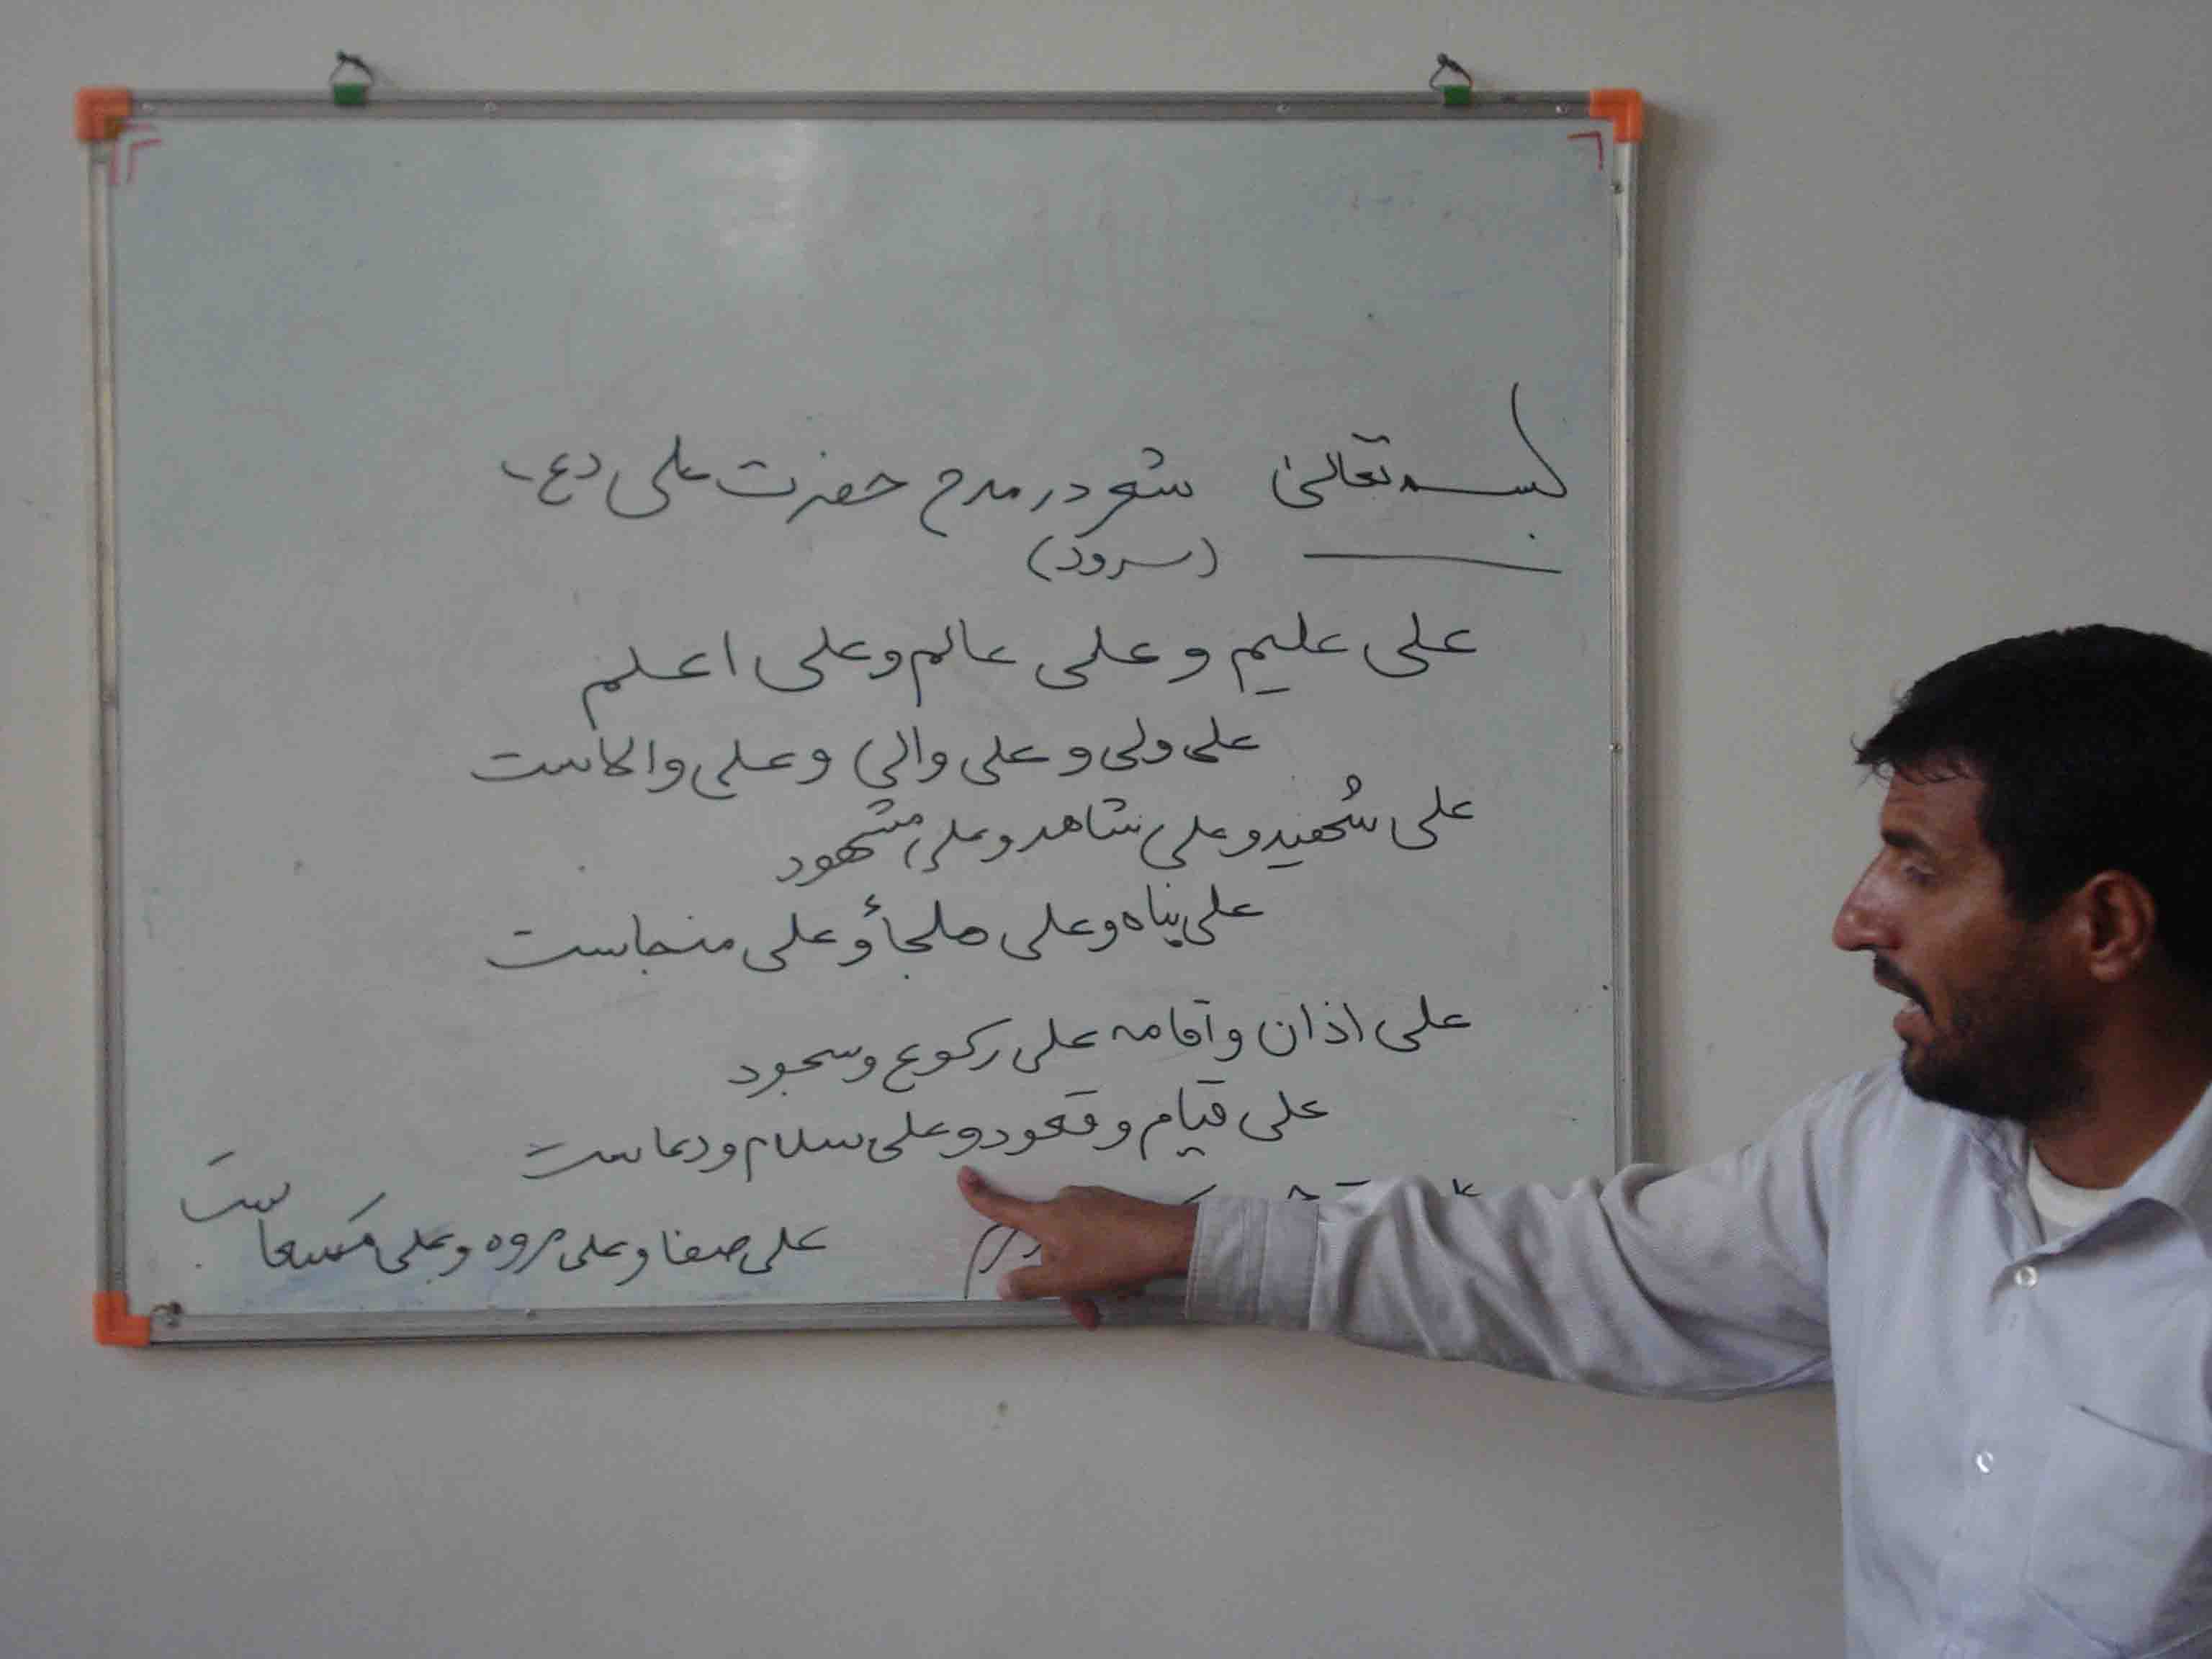 بسمه تعالی شعر در مدح حضرت علی (ع)
(سرود)
علی علیم و علی عالم و علی اعلم
علی ولی و علی والی و علی والاست
علی شهید و علی شاهد و علی مشهود
علی پناه و علی ملجأ و علی منجاست
علی اذان و اقامه علی رکوع و سجود
علی قیام و قعود و علی سلام و دعاست
علی صفا و علی مروه و علی مسعاست